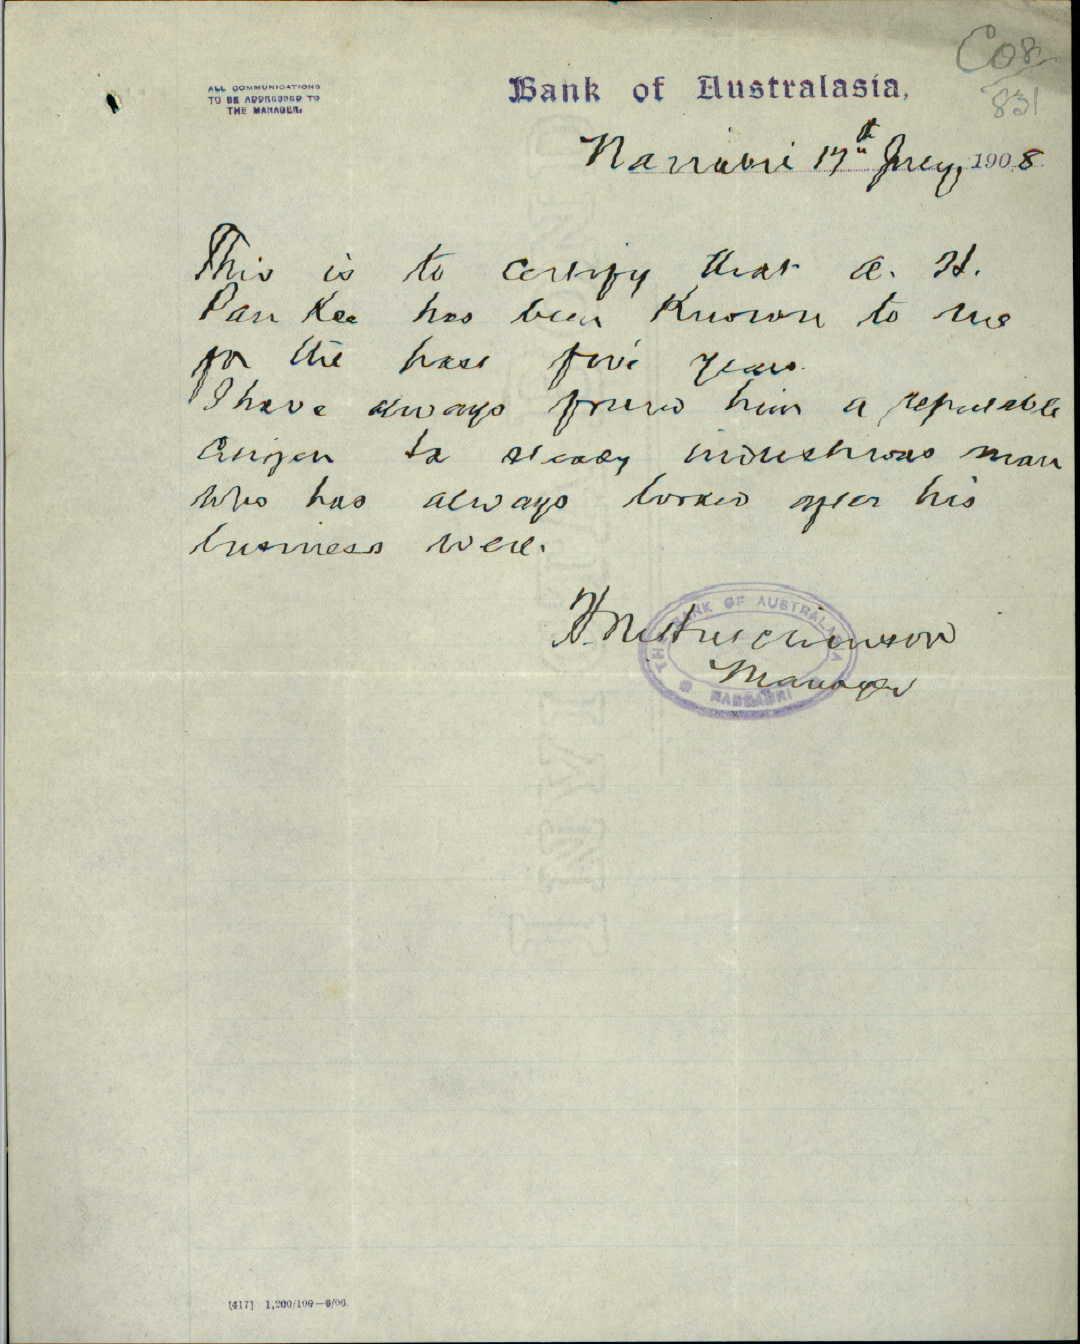 C08/
831
ALL COMMUNICATIONS
TO BE ADDRESSED TO
THE MANAGER.
Bank of Australasia,
Narrabri 17th July, 1908.
This is to certify that A. H.
Pan Kee has been known to me
for the past five years.
I have always found him a reputable
citizen & a steady industrious man
who has always looked after his
business well.
Hutchinson
Manager
THE BANK OF AUSTRALASIA
NARRABRI
[417] 1,200/100—6/06.